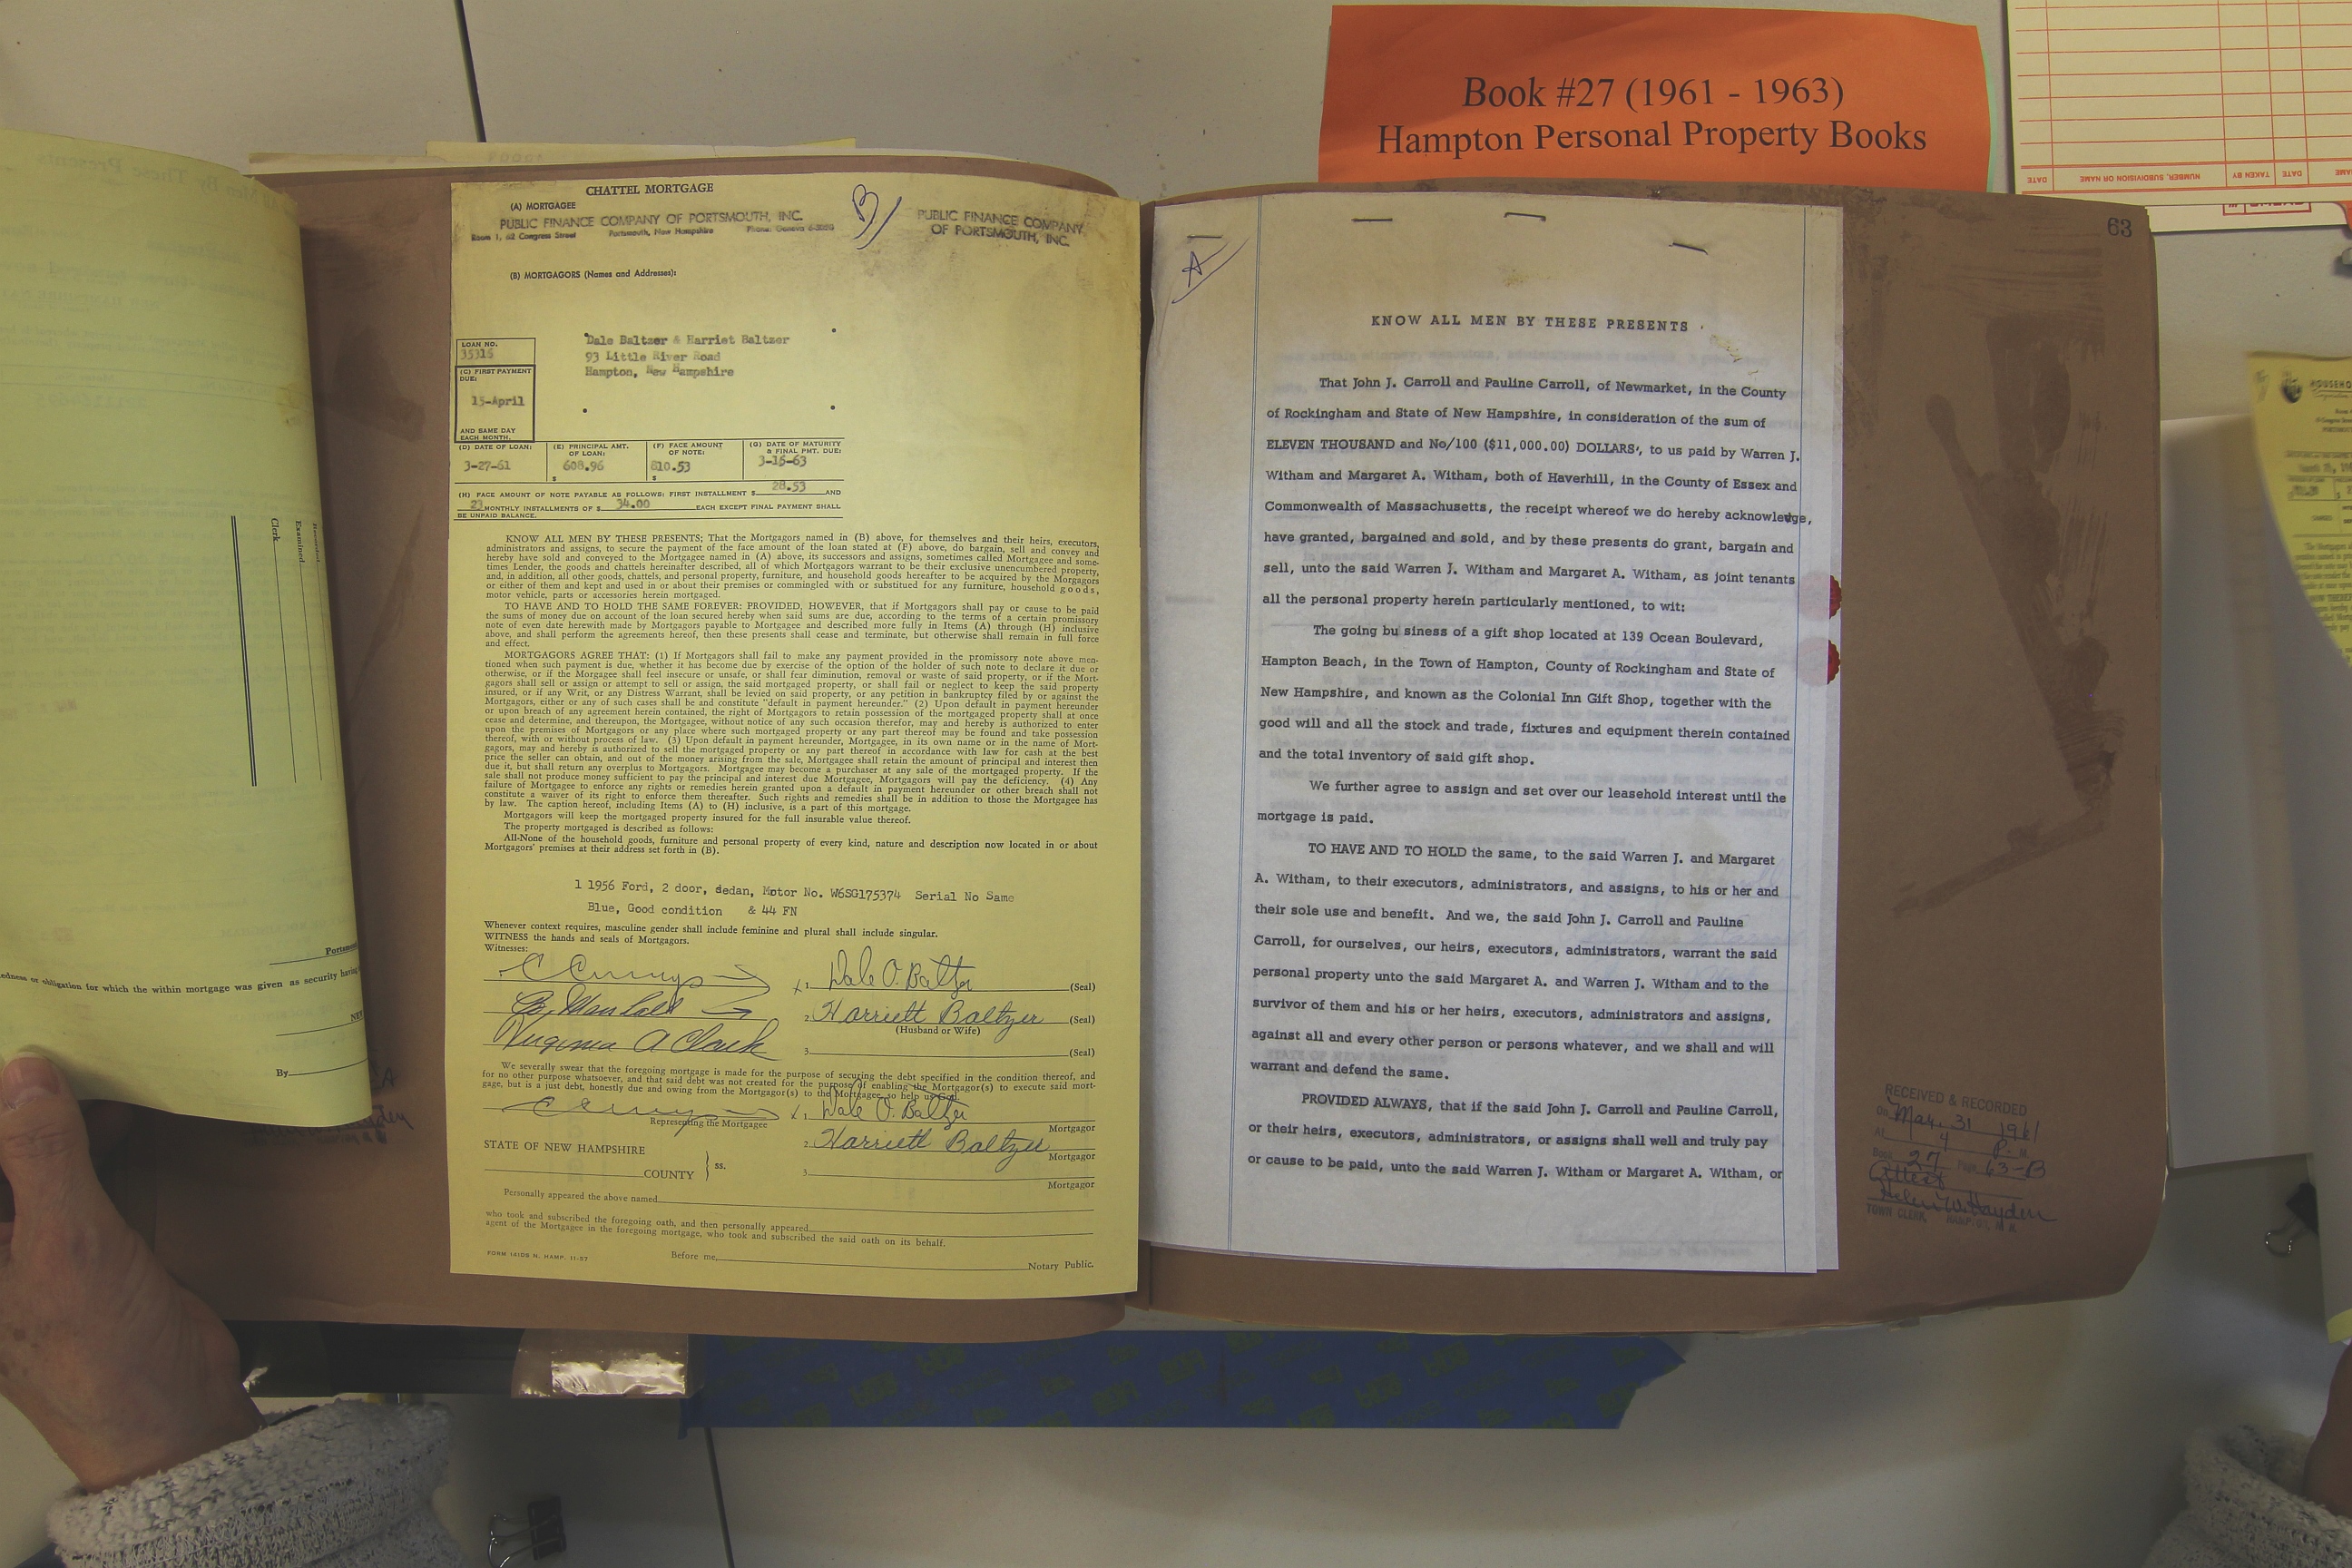 Book #27 (1961 - 1963)
Hampton Personal Property Books
CHATTEL MORTGAGE
(A) MORTGAGEE
PUBLIC FINANCE COMPANY OF PORTSMOUTH, INC.
Room 1, 62 Congress Street Portsmouth, New Hampshire Phone: Geneva
B
PUBLIC FINANCE COMPANY
OF PORTSMOUTH, INC.
(B) MORTGAGORS (Names and Addresses):
Dale Baltzer & Harriet Baltzer
93 Little River Road
Hampton, New Hampshire
LOAN NO.
35316
(C) FIRST PAYMENT
DUE:
15-April
AND SAME DAY
EACH MONTH.
(D) DATE OF LOAN: (E) PRINCIPAL AMT. OF LOAN: (F) FACE AMOUNT OF NOTE: (G) DATE OF MATURITY & FINAL PMT. DUE:
3-27-61 $ 608.96 $ 810.53 3-15-63
(H) FACE AMOUNT OF NOTE PAYABLE AS FOLLOWS: FIRST INSTALLMENT $ 28.53 AND
23 MONTHLY INSTALLMENTS OF $ 34.00 EACH EXCEPT FINAL PAYMENT SHALL
BE UNPAID BALANCE.
KNOW ALL MEN BY THESE PRESENTS; That the Mortgagors named in (B) above, for themselves and their heirs, executors,
administrators and assigns, to secure the payment of the face amount of the loan stated at (F) above, do bargain, sell and convey and
hereby have sold and conveyed to the Mortgagee named in (A) above, its successors and assigns, sometimes called Mortgagee and some-
times Lender, the goods and chattels hereinafter described, all of which Mortgagors warrant to be their exclusive unencumbered property,
and, in addition, all other goods, chattels, and personal property, furniture, and household goods hereafter to be acquired by the Morgagors
or either of them and kept and used in or about their premises or commingled with or substitued for any furniture, household goods,
motor vehicle, parts or accessories herein mortgaged.
TO HAVE AND TO HOLD THE SAME FOREVER: PROVIDED, HOWEVER, that if Mortgagors shall pay or cause to be paid
the sums of money due on account of the loan secured hereby when said sums are due, according to the terms of a certain promissory
note of even date herewith made by Mortgagors payable to Mortgagee and described more fully in Items (A) through (H) inclusive
above, and shall perform the agreements hereof, then these presents shall cease and terminate, but otherwise shall remain in full force
and effect.
MORTGAGORS AGREE THAT: (1) If Mortgagors shall fail to make any payment provided in the promissory note above men-
tioned when such payment is due, whether it has become due by exercise of the option of the holder of such note to declare it due or
otherwise, or if the Morgagee shall feel insecure or unsafe, or shall fear diminution, removal or waste of said property, or if the Mort-
gagors shall sell or assign or attempt to sell or assign, the said mortgaged property, or shall fail or neglect to keep the said property
insured, or if any Writ, or any Distress Warrant, shall be levied on said property, or any petition in bankruptcy filed by or against the
Mortgagors, either or any of such cases shall be and constitute "default in payment hereunder." (2) Upon default in payment hereunder
or upon breach of any agreement herein contained, the right of Mortgagors to retain possession of the mortgaged property shall at once
cease and determine, and thereupon, the Mortgagee, without notice of any such occasion therefor, may and hereby is authorized to enter
upon the premises of Mortgagors or any place where such mortgaged property or any part thereof may be found and take possession
thereof, with or without process of law. (3) Upon default in payment hereunder, Mortgagee, in its own name or in the name of Mort-
gagors, may and hereby is authorized to sell the mortgaged property or any part thereof in accordance with law for cash at the best
price the seller can obtain, and out of the money arising from the sale, Mortgagee shall retain the amount of principal and interest then
due it, but shall return any overplus to Mortgagors. Mortgagee may become a purchaser at any sale of the mortgaged property. If the
sale shall not produce money sufficient to pay the principal and interest due Mortgagee, Mortgagors will pay the deficiency. (4) Any
failure of Mortgagee to enforce any rights or remedies herein granted upon a default in payment hereunder or other breach shall not
constitute a waiver of its right to enforce them thereafter. Such rights and remedies shall be in addition to those the Mortgagee has
by law. The caption hereof, including Items (A) to (H) inclusive, is a part of this mortgage.
Mortgagors will keep the mortgaged property insured for the full insurable value thereof.
The property mortgaged is described as follows:
All-None of the household goods, furniture and personal property of every kind, nature and description now located in or about
Mortgagors' premises at their address set forth in (B).
1 1956 Ford, 2 door, sedan, Motor No. W6SG175374 Serial No Same
Blue, Good condition & 44 FN
Whenever context requires, masculine gender shall include feminine and plural shall include singular.
WITNESS the hands and seals of Mortgagors.
Witnesses:
1. Dale O. Baltzer (Seal)
2. Harriett Baltzer (Seal)
(Husband or Wife)
Virginia A Clark 3. (Seal)
We severally swear that the foregoing mortgage is made for the purpose of securing the debt specified in the condition thereof, and
for no other purpose whatsoever, and that said debt was not created for the purpose of enabling the Mortgagor(s) to execute said mort-
gage, but is a just debt, honestly due and owing from the Mortgagor(s) to the Mortgagee, so help us God.
1. Dale O. Baltzer
Representing the Mortgagee Mortgagor
2. Harriett Baltzer
Mortgagor
STATE OF NEW HAMPSHIRE
COUNTY ss.
3.
Mortgagor
Personally appeared the above named
who took and subscribed the foregoing oath, and then personally appeared
agent of the Mortgagee in the foregoing mortgage, who took and subscribed the said oath on its behalf.
FORM 181DS N. HAMP. 11-57
Before me, Notary Public.
Clerk
Examined
By
A
63
KNOW ALL MEN BY THESE PRESENTS
That John J. Carroll and Pauline Carroll, of Newmarket, in the County
of Rockingham and State of New Hampshire, in consideration of the sum of
ELEVEN THOUSAND and No/100 ($11,000.00) DOLLARS, to us paid by Warren J.
Witham and Margaret A. Witham, both of Haverhill, in the County of Essex and
Commonwealth of Massachusetts, the receipt whereof we do hereby acknowledge,
have granted, bargained and sold, and by these presents do grant, bargain and
sell, unto the said Warren J. Witham and Margaret A. Witham, as joint tenants
all the personal property herein particularly mentioned, to wit:
The going bu siness of a gift shop located at 139 Ocean Boulevard,
Hampton Beach, in the Town of Hampton, County of Rockingham and State of
New Hampshire, and known as the Colonial Inn Gift Shop, together with the
good will and all the stock and trade, fixtures and equipment therein contained
and the total inventory of said gift shop.
We further agree to assign and set over our leasehold interest until the
mortgage is paid.
TO HAVE AND TO HOLD the same, to the said Warren J. and Margaret
A. Witham, to their executors, administrators, and assigns, to his or her and
their sole use and benefit. And we, the said John J. Carroll and Pauline
Carroll, for ourselves, our heirs, executors, administrators, warrant the said
personal property unto the said Margaret A. and Warren J. Witham and to the
survivor of them and his or her heirs, executors, administrators and assigns,
against all and every other person or persons whatever, and we shall and will
warrant and defend the same.
PROVIDED ALWAYS, that if the said John J. Carroll and Pauline Carroll,
or their heirs, executors, administrators, or assigns shall well and truly pay
or cause to be paid, unto the said Warren J. Witham or Margaret A. Witham, or
RECEIVED & RECORDED
On Mar. 31 1961
At 4 P. M.
Book 27 Page 63-B
Attest
Helen W. Hayden
TOWN CLERK, HAMPTON, N. H.
NUMBER, SUBDIVISION OR NAME
TAKEN BY
DATE
DATE